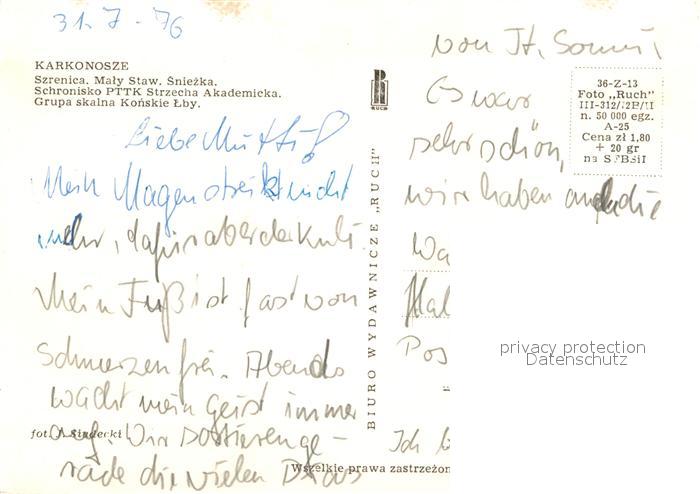 31.7.76
KARKONOSZE
Szrenica. Mały Staw. Śnieżka.
Schronisko PTTK Strzecha Akademicka.
Grupa skalna Końskie Łby.
Liebe Mutti!
Mein Magen streikt nicht
mehr, dafür aber der Kuli.
Mein Fuß ist fast von
Schmerzen frei. Abends
wacht mein Geist immer
auf. Wir sortieren ge-
rade die vielen Dias
fot. J. Siudecki
BIURO WYDAWNICZE „RUCH"
RUCH
Wszelkie prawa zastrzeżon
von
Es war
sehr schön,
wir haben auch die
Wa
Hal
Pos
Ich
36-Z-13
Foto „Ruch"
n. 50 000 egz.
A-25
Cena zł 1,80
+ 20 gr
na SFBSiI
privacy protection
Datenschutz